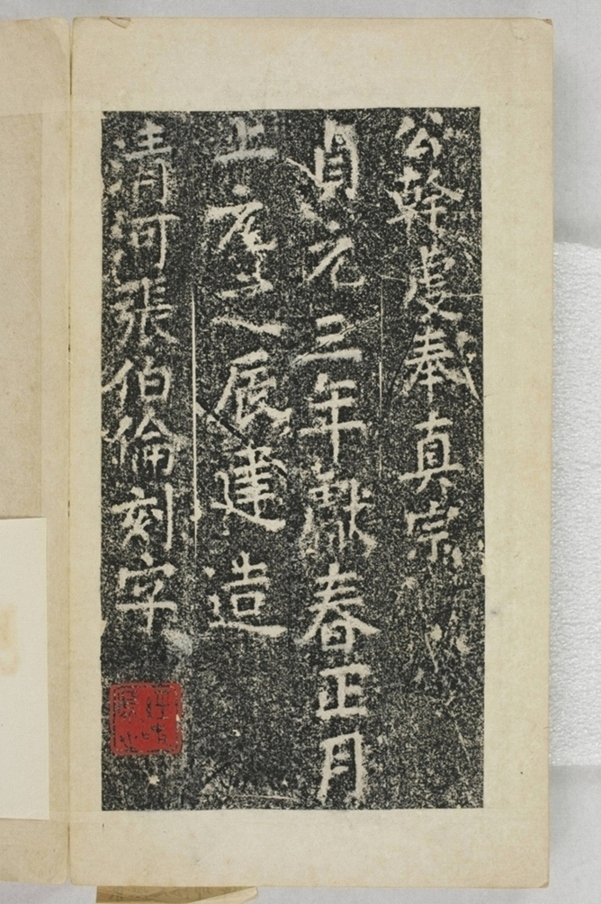 公幹虔奉真宗
貞元三年獻春正月
上元之辰建造
清河張伯倫刻字